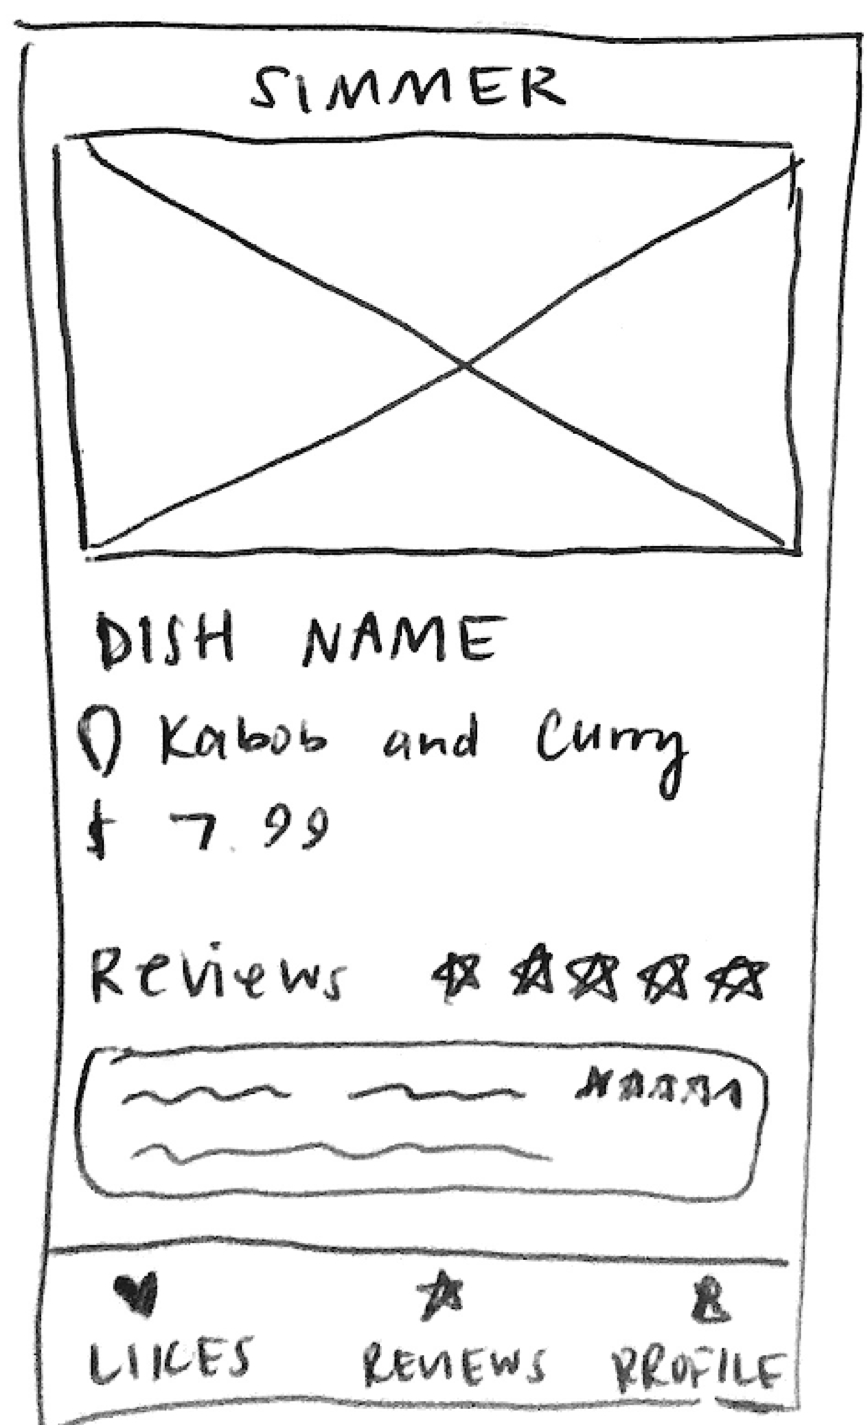 SIMMER
DISH NAME
Kabob and Curry
$ 7.99
Reviews
LIKES REVIEWS PROFILE